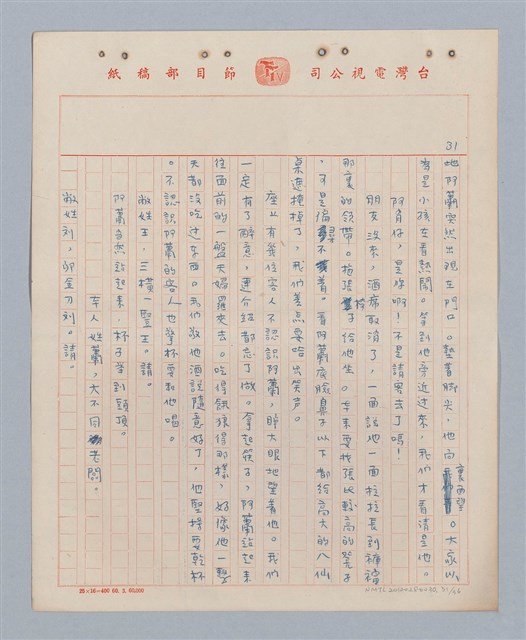 台灣電視公司
TTV
節目部稿紙
31
地阿蕭突然出現在門口。墊著腳尖，他向裏面望。大家以
為是小孩在看熱鬧。等到他旁近过來，我们才看清是他。
阿育仔，是你啊！不是請客去了嗎！
朋友沒來，酒席取消了，一面說他一面拉拉長到褲襠
那裏的領帶。拖張椅子給他坐。本來要找張比較高的凳子
，可是偏尋不着。看阿蕭皮臉鼻子以下都給高大的八仙
桌遮掩掉了，我们差点要哈出笑声。
座上有幾位客人不認識阿蕭，睜大眼地望着他。我们
一定有了醉意，連介绍都忘了做。拿起筷子，阿蕭站起來
往面前的一盤夾過去。吃得餓狼得那樣，好像他一整
天都沒吃过东西。我们敬他酒說隨意好了，他堅持要乾杯
。不認識阿蕭的客人也擎杯要和他喝。
敝姓王，三橫一豎王。請。
阿蕭自然站起來，杯子举到頭頂。
本人姓蕭，大不同老闆。
敝姓刘，卯金刀刘。請。
25×16=400 60. 3. 60,000
NMTL 20100280030, 31/66